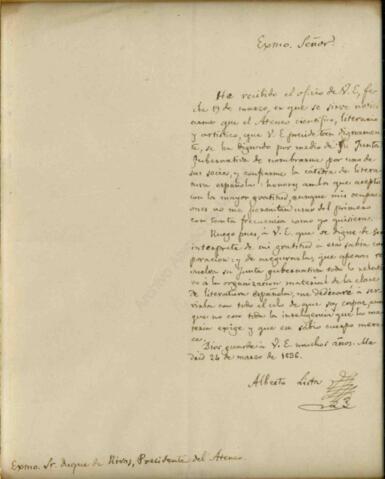 Exmo. Señor.
He recibido el oficio de V. E., fe-
cha 19 de marzo, en que se sirve noti-
ciarme que el Ateneo científico, literario
y artístico, que V. E. preside tan dignamen-
te, se ha dignado por medio de su Junta
Gubernativa de nombrarme por uno de
sus socios, y confiarme la cátedra de litera-
tura española: honores ambos que acepto
con la mayor gratitud, aunque mis ocupa-
ciones no me permitan usar del primero
con tanta frecuencia como yo quisiera.
Ruego pues, á V. E. que se digne de ser
intérprete de mi gratitud á esa sabia cor-
poracion: y de asegurarla, que apenas re-
suelva su Junta gubernativa todo lo relati-
vo á la organizacion material de la clase
de literatura española, me dedicaré á ser-
virla con todo el celo de que soy capaz, aun-
que no con toda la inteligencia que la ma-
teria exige y que ese sabio cuerpo mere-
ce.
Dios guarde á V. E. muchos años. Ma-
drid 24 de marzo de 1836.
Alberto Lista
Exmo. Sr. duque de Rivas, Presidente del Ateneo.